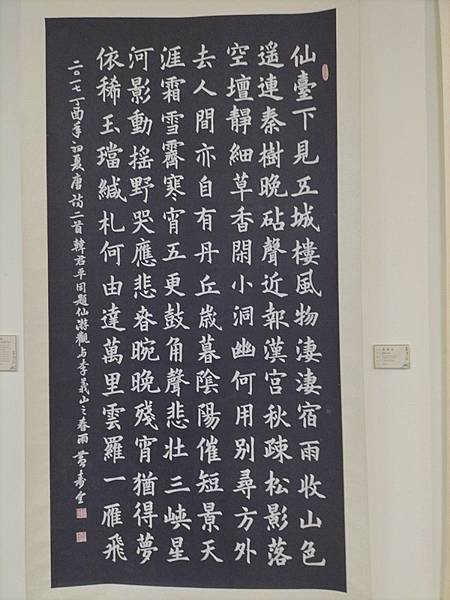 仙臺下見五城樓風物淒淒宿雨收山色
遥連秦樹晚砧聲近報漢宮秋疎松影落
空壇靜細草香閑小洞幽何用別尋方外
去人間亦自有丹丘歲暮陰陽催短景天
涯霜雪霽寒宵五更鼓角聲悲壯三峽星
河影動搖野哭應悲春晼晚殘宵猶得夢
依稀玉璫緘札何由達萬里雲羅一雁飛
二〇一七丁酉年初夏唐詩二首韓君平同題仙游觀与李義山之春雨